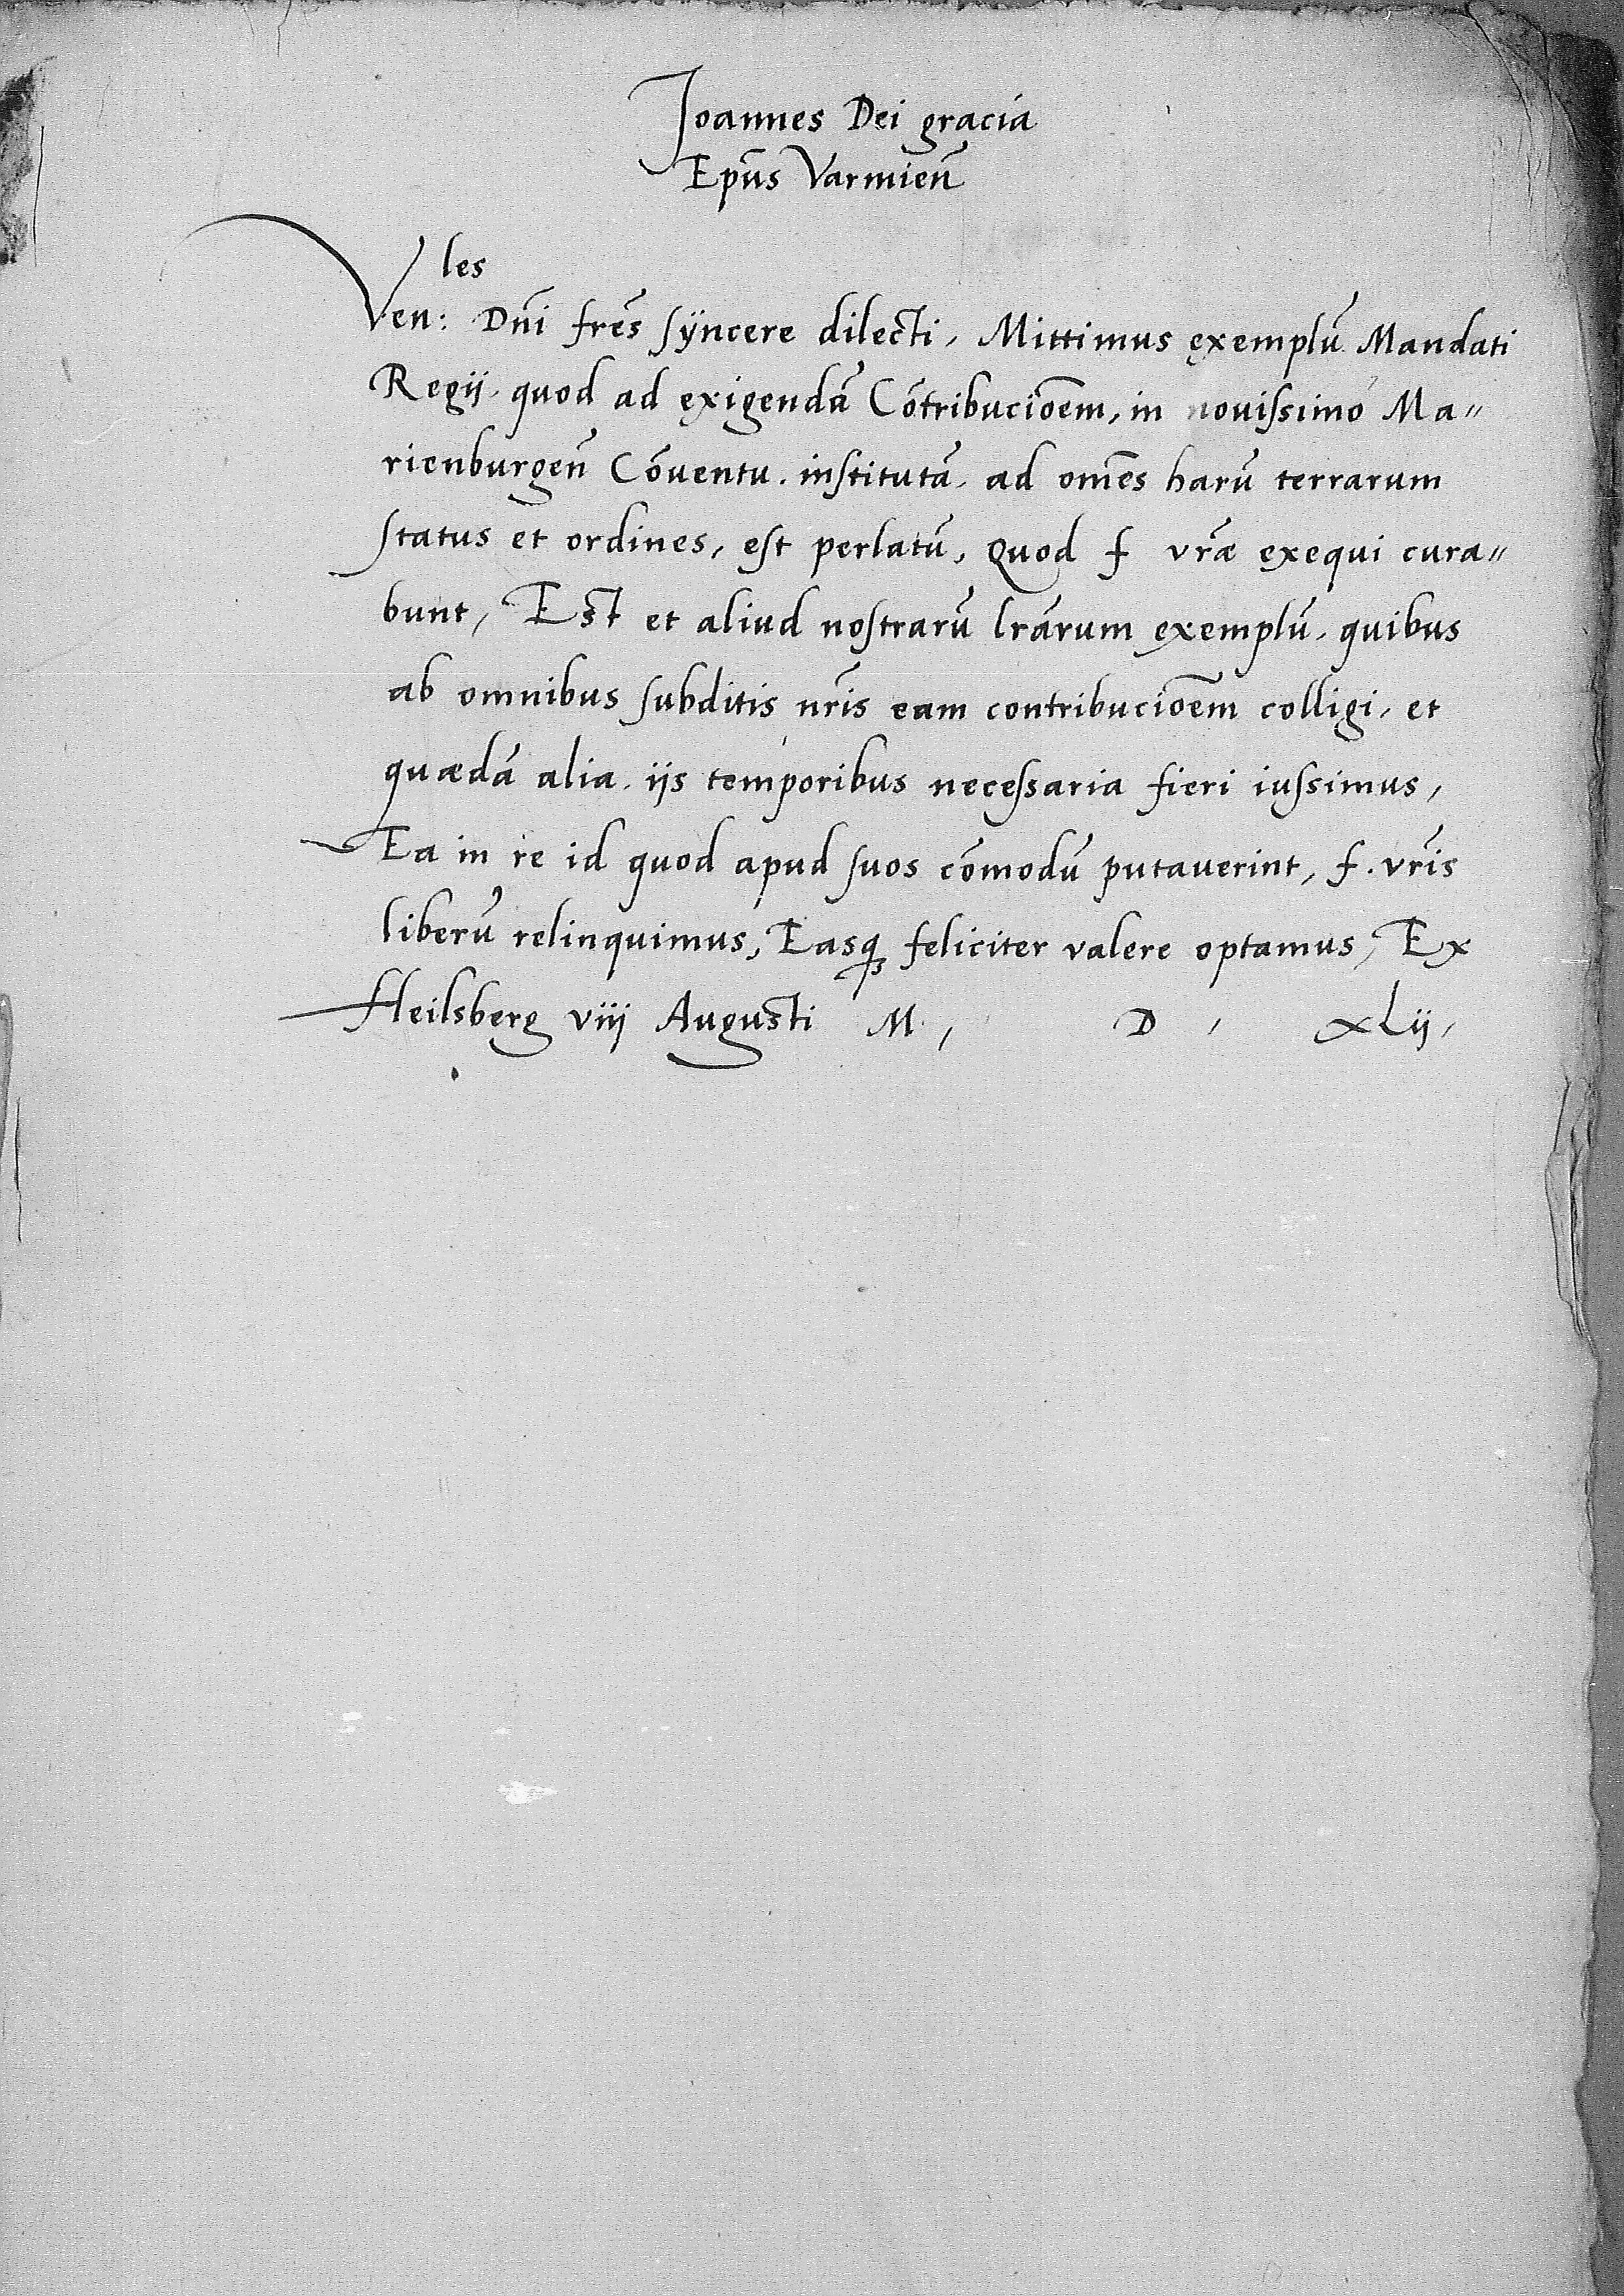 Joannes Dei gracia
Ep̄us Varmień
les
Ven: Dn̄i fr̄es syncere dilecti, Mittimus exemplū Mandati
Regij, quod ad exigendā Cōntribucio͞em, in novissimo Ma⸗
rienburgeń Cōventu institutā, ad om̄es harū terrarum
status et ordines, est perlatū, Quod f vr̄æ exequi cura⸗
bunt, Est et aliud nostrarū lr̄arum exemplū, quibus
ab omnibus subditis nr̄is eam contribucio͞em colligi, et
quædā alia, ijs temporibus necessaria fieri iussimus,
Ea in re id quod apud suos cōmodū putaverint, f. vr̄is
liberū relinquimus, Easqꝫ feliciter valere optamus, Ex
Heilsberg viij Augusti M, D, XLij,